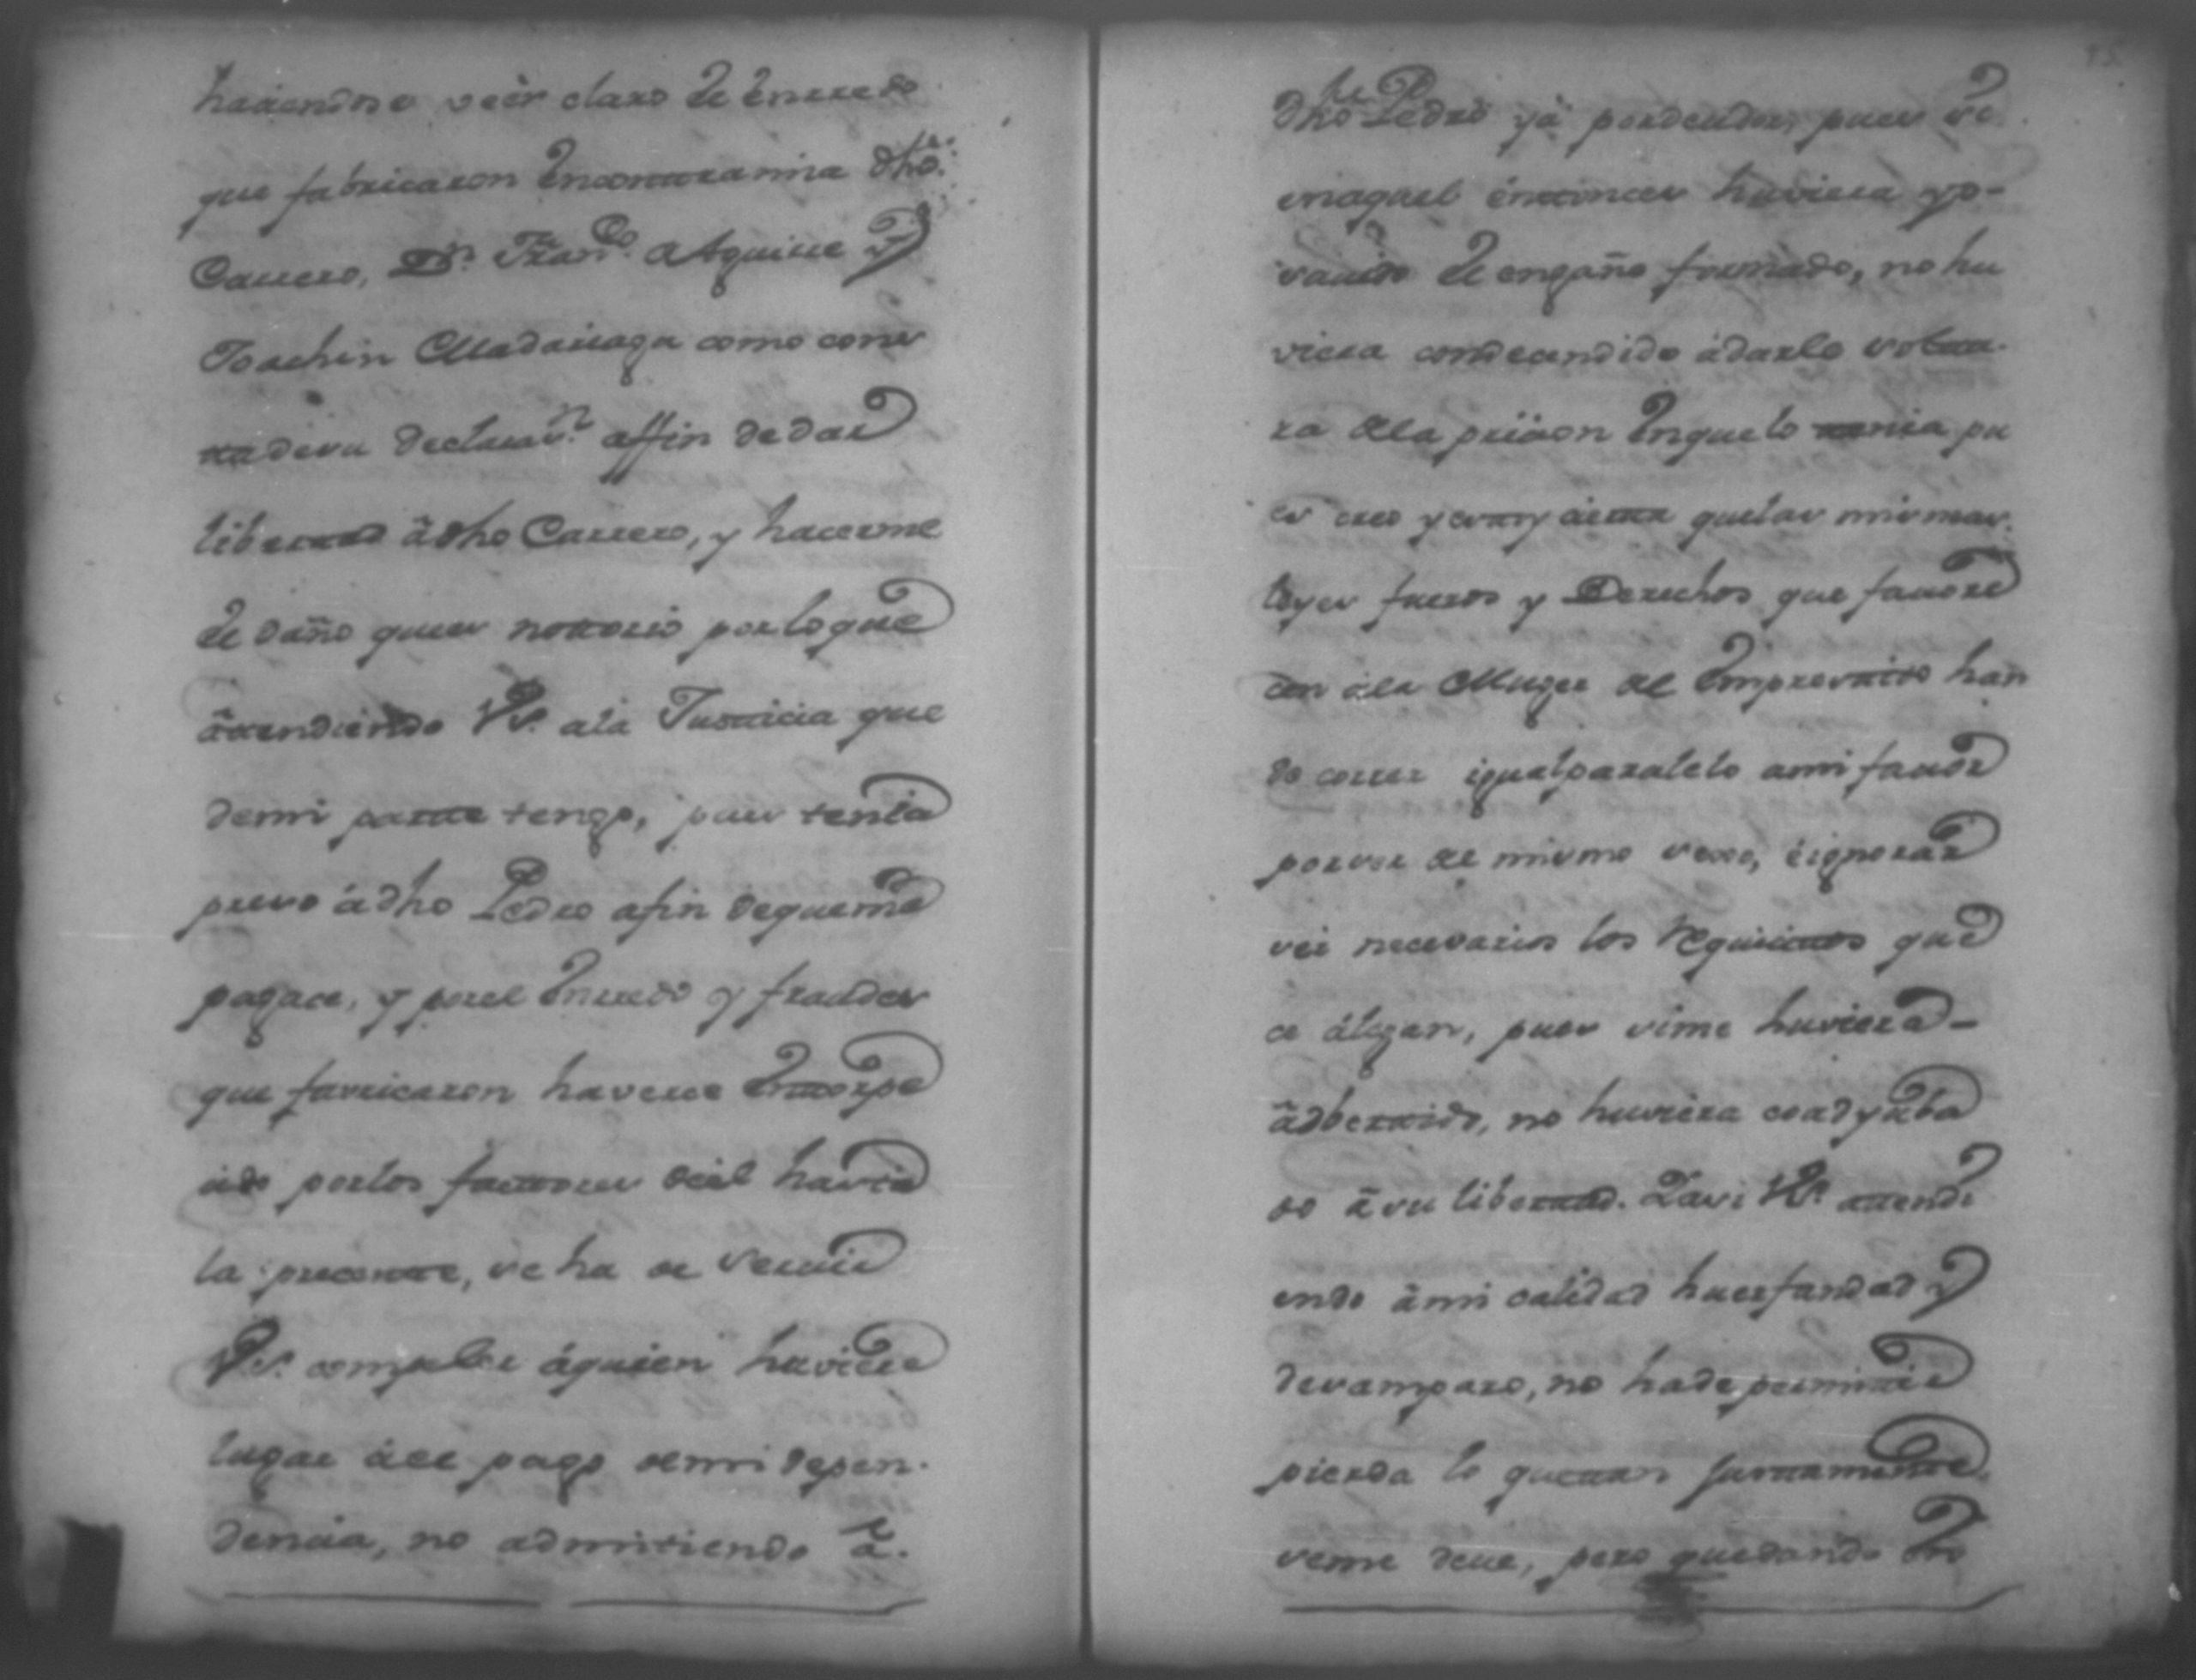 haciendose veèr claro el enrredo
que fabricaron En contra mia dho.
Carrero, Dn. Franco. Aguirre y
Joachin Madariaga como cons
ta de su declaracn. affin de dar
libertad â dho Carrero, y hacerme
el daño que es notorio por lo que
âtendiendo Vs. a la Justicia que
de mi parte tengo, pues tenia
preso â dho Pedro afin de que me
pagace, y por el Enrredo y fraudes
que favricaron haverse Entorpe
cido por los factores de el havia
la precente, se ha de servir
Vs. compeler á quien huviere
lugar âce el pago de mi depen-
dencia, no admitiendo â.
dho Pedro yà por deudor, pues se
en aquel êntonces huviera yo-
savido el engaño formado, no hu
viera condecendido âdarlo soltu-
ra de la pricion En que lo tenia pu
es creo y estoy cierta que las mismas
leyes fueros y Derechos que favore
cen ála Muger de Emprestito han
de correr igual paralelo a mi favor
por ser de mismo sexo, é ignorar
ser necesarios los Requicitos que
ce álegan, pues sime huviera-
âdbertido, no huviera coadyuba
do âsu libertad. Y asi Vs. atendi
endo âmi calidad huerfandad y
desamparo, no hade permitir
pierda lo que tan justamente
seme deve, pero quedando dho